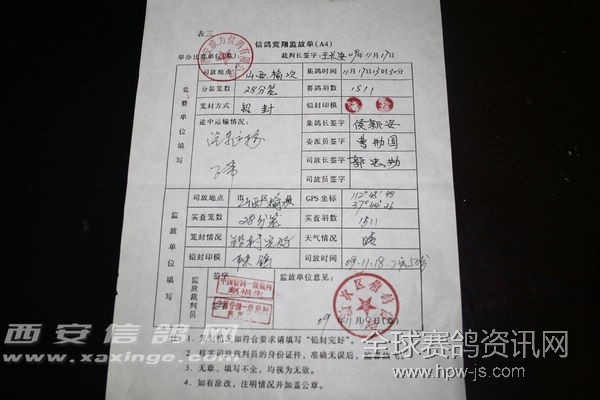 表三
信鸽竞翔监放单(A4)
举办比赛单位 裁判长签字: 09年11月17日
竞赛单位填写
司放地点 山西榆次 集鸽时间 11月17日13时30分
分装笼数 28分笼 赛鸽羽数 1511
笼封方式 铅封 铅封印模
途中运输情况: 集鸽长签字 侯新安
汽车运输 委派员签字
正常 司放长签字
司放员签字
监放单位填写
司放地点 山西榆次 GPS坐标 112°43′48 37°44′26
实查笼数 28分笼 实查羽数 1511
笼封情况 铅封完好 天气情况 晴
铅封印模 司放时间 09.11.18.
监放裁判员 签字 监放单位意见:
09年11月 日(章)
注:1、笼封情况如符合要求请填写“铅封完好”。
2、核实司放裁判员的身份证件,准确无误后,监卷放飞。
3、无章、填写不全,均视为无效。
4、如有涂改,注明情况并加盖公章。
西安信鸽网
www.xaxinge.com
全球赛鸽资讯网
www.hpw-js.com